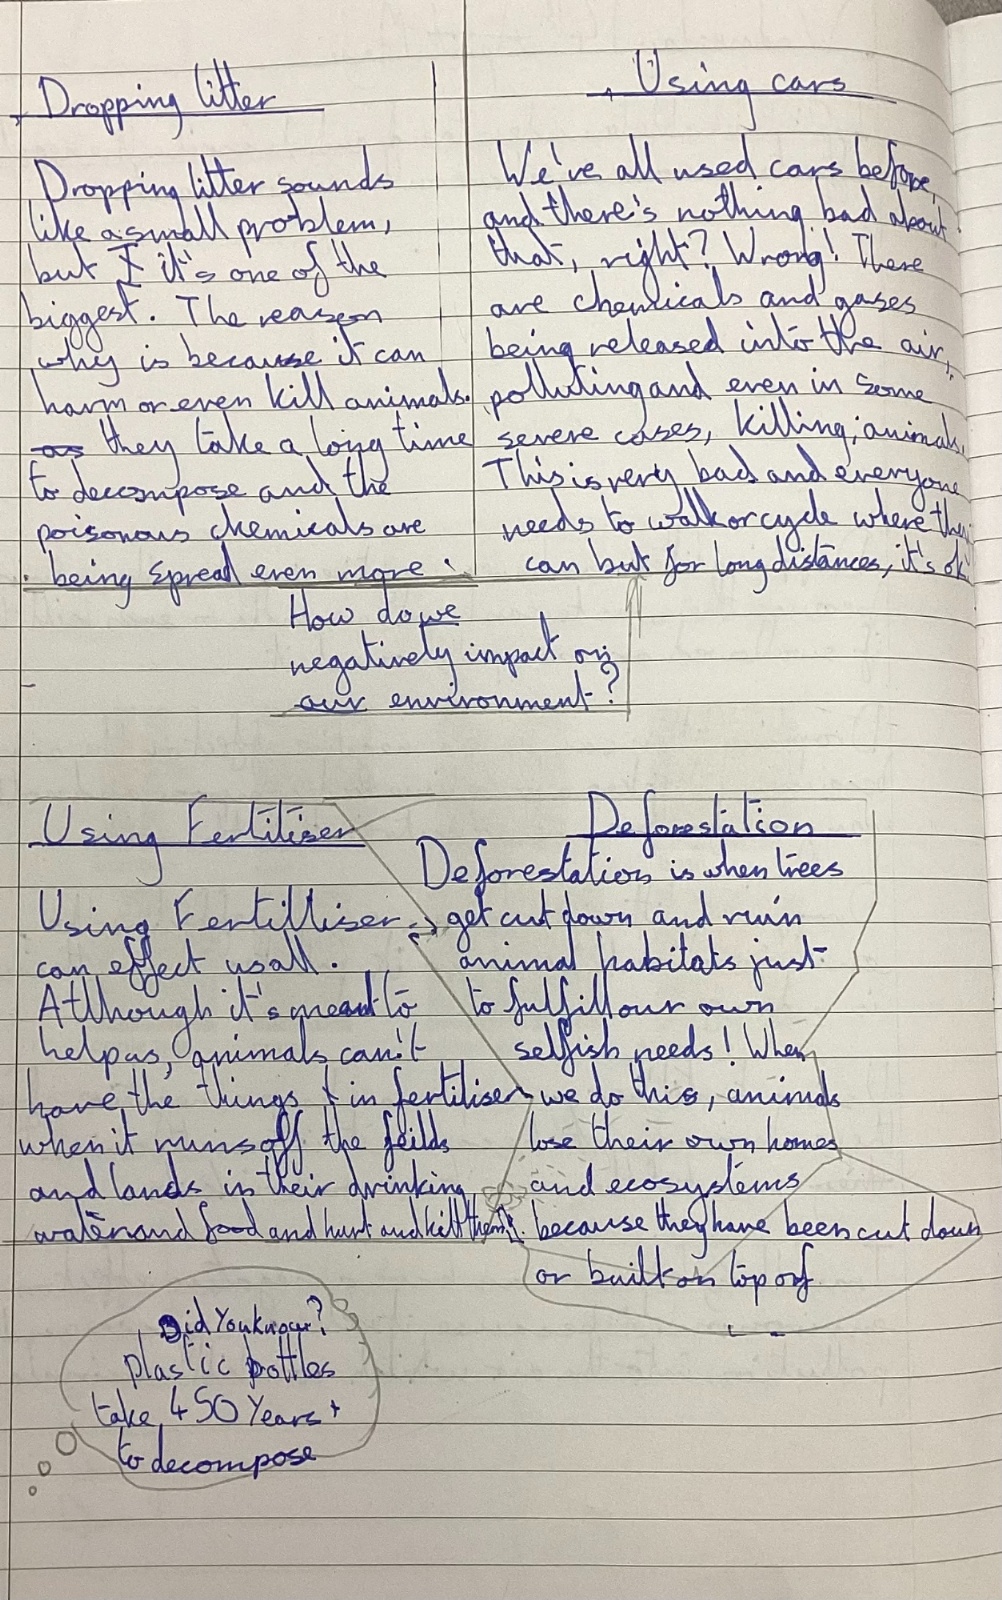 Dropping litter
Dropping litter sounds
like a small problem,
but I it's one of the
biggest. The reason
why is because it can
harm or even kill animals.
as they take a long time
to decompose and the
poisonous chemicals are
being spread even more.
Using cars
We've all used cars before,
and there's nothing bad about
that, right? Wrong! There
are chemicals and gases
being released into the air,
polluting and even in some
severe cases, killing animals.
This is very bad and everyone
needs to walk or cycle where they
can but for long distances, it's ok
How do we
negatively impact on
our environment?
Using Fertiliser
Using Fertilliser
can effect us all.
Atlhough it's meant to
help us, animals can't
have the things in fertiliser
when it runs off the feilds
and lands in their drinking
water and food and hurt and kill them.
Deforestation
Deforestation is when trees
get cut down and ruin
animal habitats just
to fulfill our own
selfish needs! When
we do this, animals
lose their own homes
and ecosystems
because they have been cut down
or built on top of
Did You know?
plastic bottles
take 450 Years +
to decompose